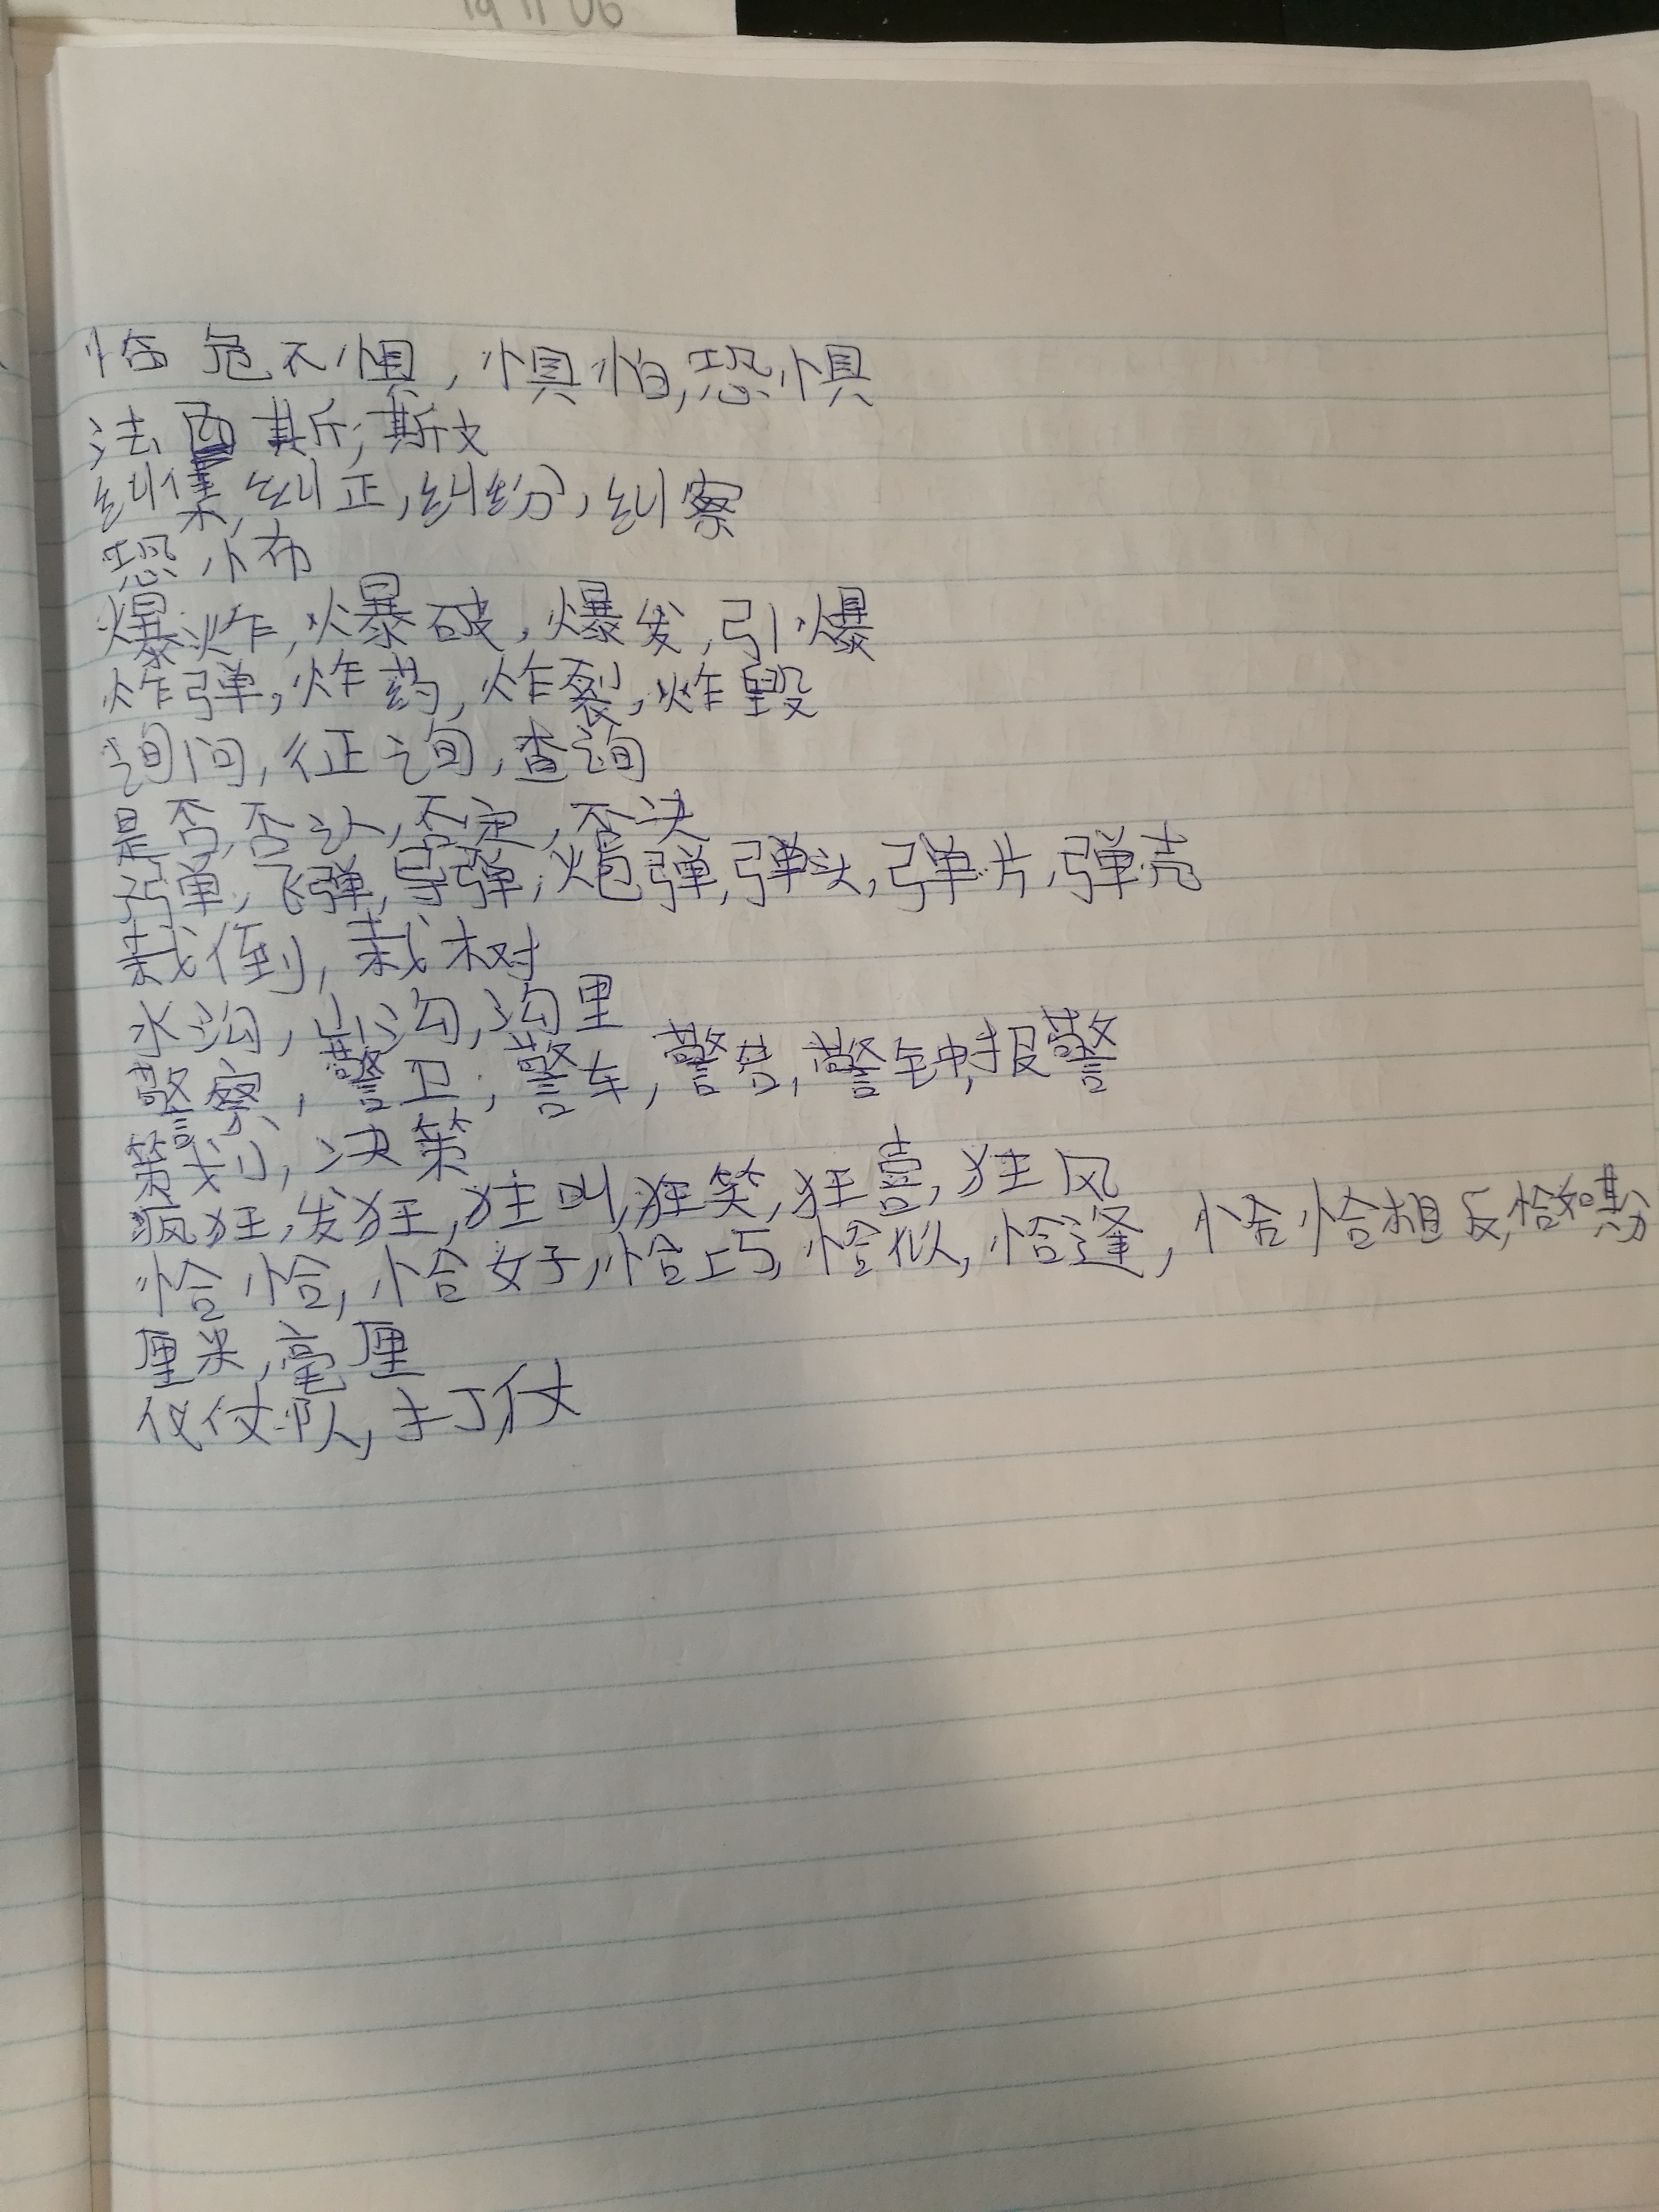 19 11 06
临危不惧,惧怕,恐惧
法西斯,斯文
纠集,纠正,纠纷,纠察
恐怖
爆炸,爆破,爆发,引爆
炸弹,炸药,炸裂,炸毁
询问,征询,查询
是否,否认,否定,否决
子弹,飞弹,导弹,炮弹,弹头,弹片,弹壳
栽倒,栽树
水沟,山沟,沟里
警察,警卫,警车,警告,警钟,报警
策划,决策
疯狂,发狂,狂叫,狂笑,狂喜,狂风
恰恰,恰好,恰巧,恰似,恰逢,恰恰相反,恰如其分
厘米,毫厘
仪仗队,打仗